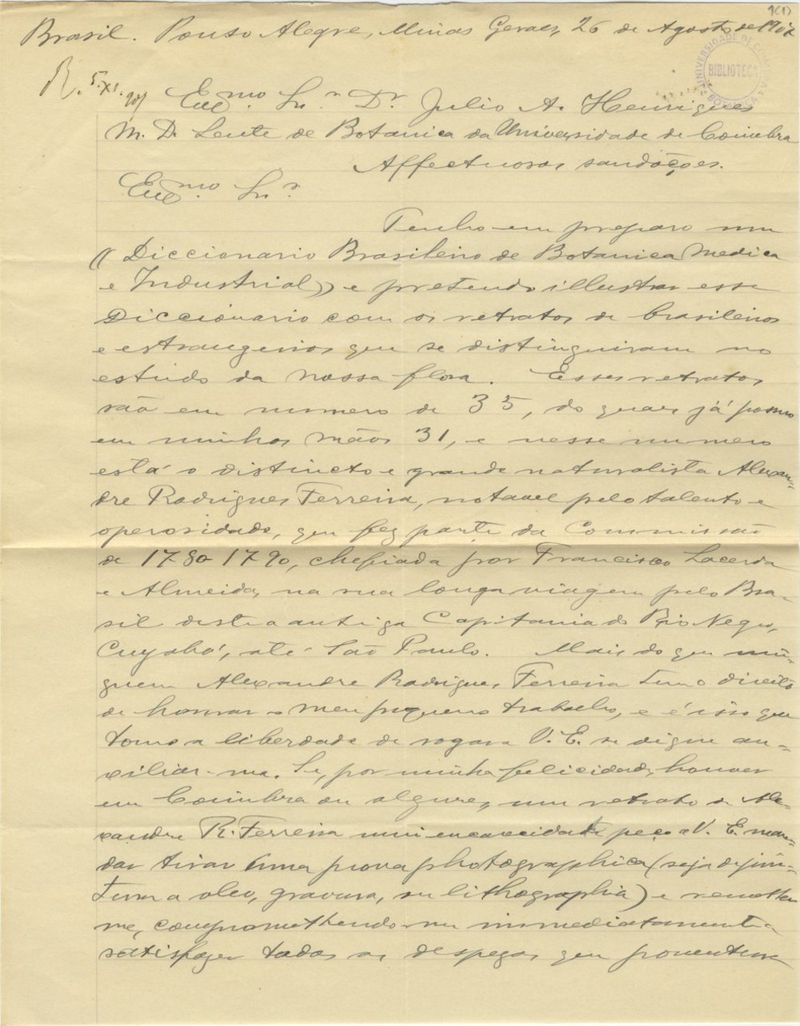 1(1)
Brasil. Pouso Alegre, Minas Geraes, 26 de Agosto de 1907
UNIVERSIDADE DE COIMBRA
BIBLIOTECA
R. 5.XI.907
Exmo. Snr. Dr. Julio A. Henriques
M. D. Lente de Botanica da Universidade de Coimbra
Affectuosas saudações.
Exmo. Snr.
Tenho em preparo um
(( Diccionario Brasileiro de Botanica Medica
e Industrial )) e pretendo illustrar esse
Diccionario com os retratos de brasileiros
e estrangeiros que se distinguiram no
estudo da nossa flora. Esses retratos
são em numero de 35, do quaes já posuo
em minhas mãos 31, e nesse numero
está o distincto e grande naturalista Alexan-
dre Rodrigues Ferreira, notavel pelo talento e
operosidade, que fez parte da Commissão
de 1780 1790, chefiada por Francisco Lacerda
e Almeida, na sua longa viagem pelo Bra-
sil desde a antiga Capitania do Rio Negro,
Cuyabá, até São Paulo. Mais do que nin-
guem Alexandre Rodrigues Ferreira tem o direito
de honrar o meu pequeno trabalho, e é isso que
tomo a liberdade de rogar a V. E. se digne au-
xiliar-me. Se, por minha felicidade, houver
em Coimbra ou algures, um retrato de Ale-
xandre R. Ferreira mui encarecidate peço a V. E. man-
dar tirar uma prova photographica (seja de pin-
tura a oleo, gravura, ou lithographia) e remetter
me, compromettendo-me immediatamente a
satisfazer todas as despezas que